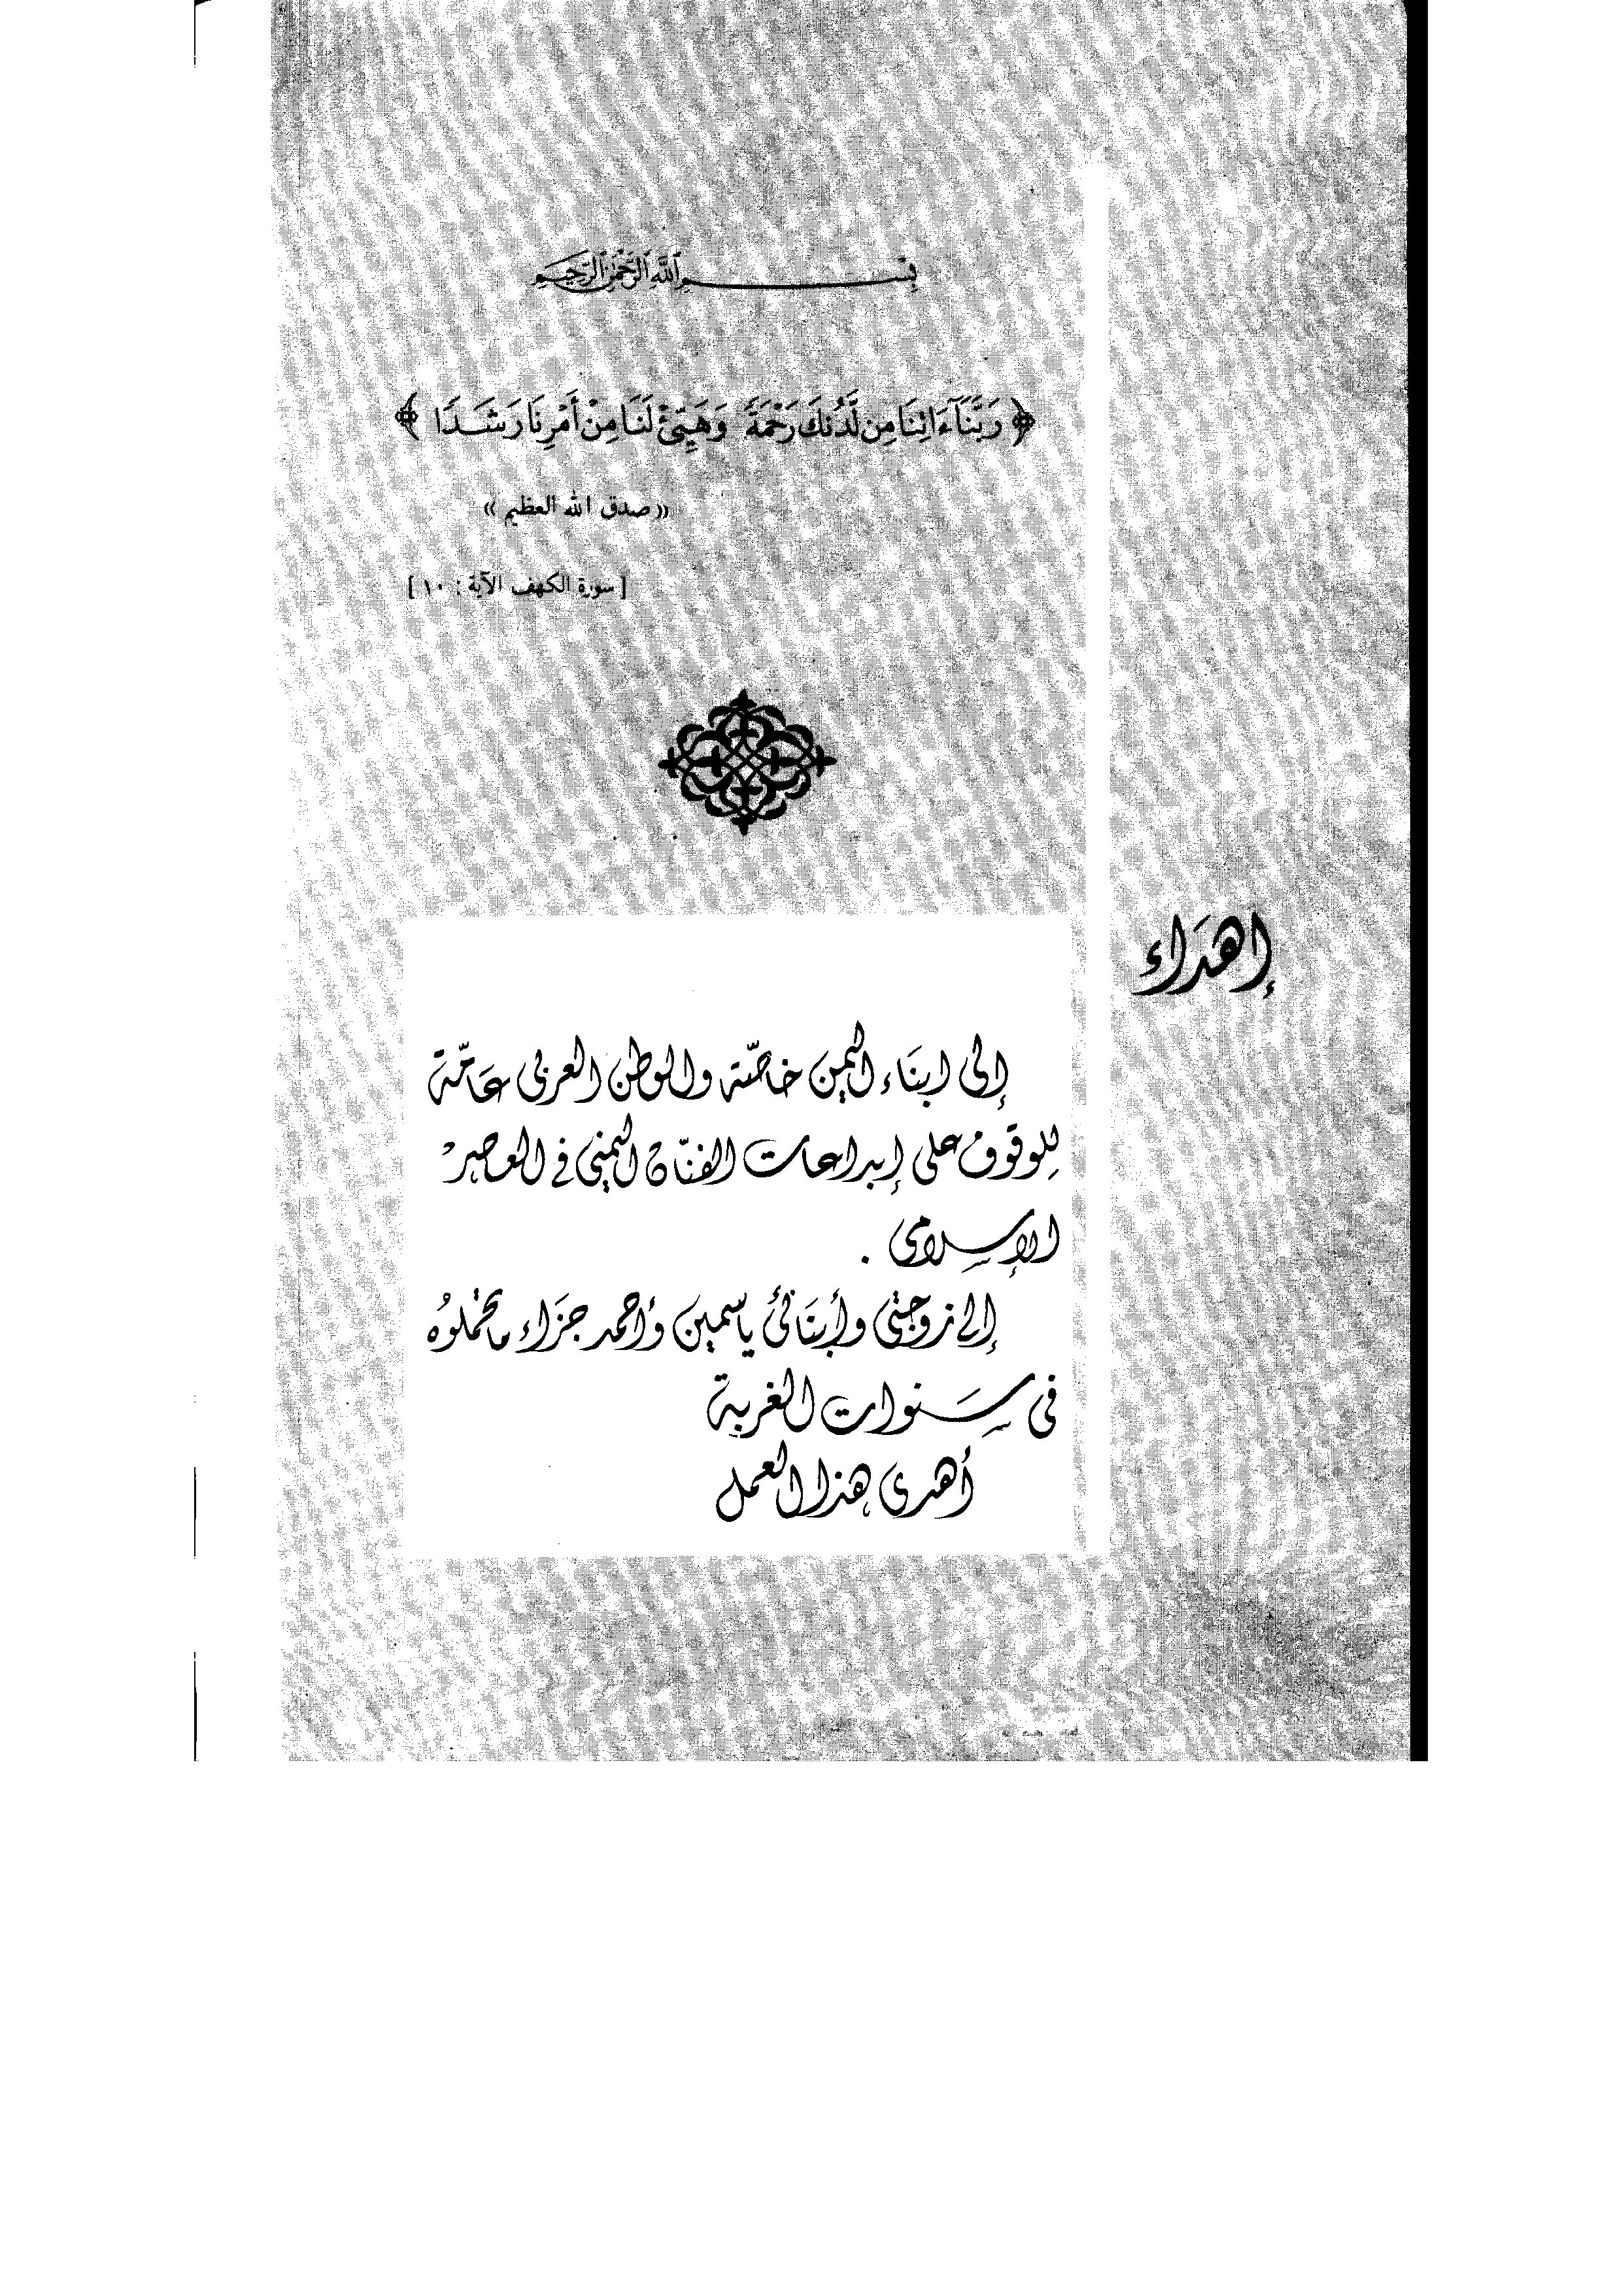 بِسْمِ ٱللَّهِ ٱلرَّحْمَٰنِ ٱلرَّحِيمِ
﴿ رَبَّنَآ ءَاتِنَا مِن لَّدُنكَ رَحْمَةً وَهَيِّئْ لَنَا مِنْ أَمْرِنَا رَشَدًا ﴾
« صدق الله العظيم »
[ سورة الكهف الآية : ١٠ ]
إهداء
إلى ابناء اليمن خاصّة والوطن العربى عامّة
للوقوف على إبداعات الفنّان اليمنى فى العصر
الإسلامى .
إلى زوجتى وأبنائى ياسمين وأحمد جزاء ماتحملوه
فى سنوات الغربة
أهدى هذا العمل